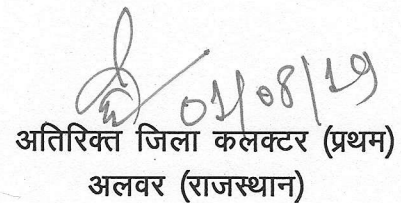 01/08/19
अतिरिक्त जिला कलक्टर (प्रथम)
अलवर (राजस्थान)